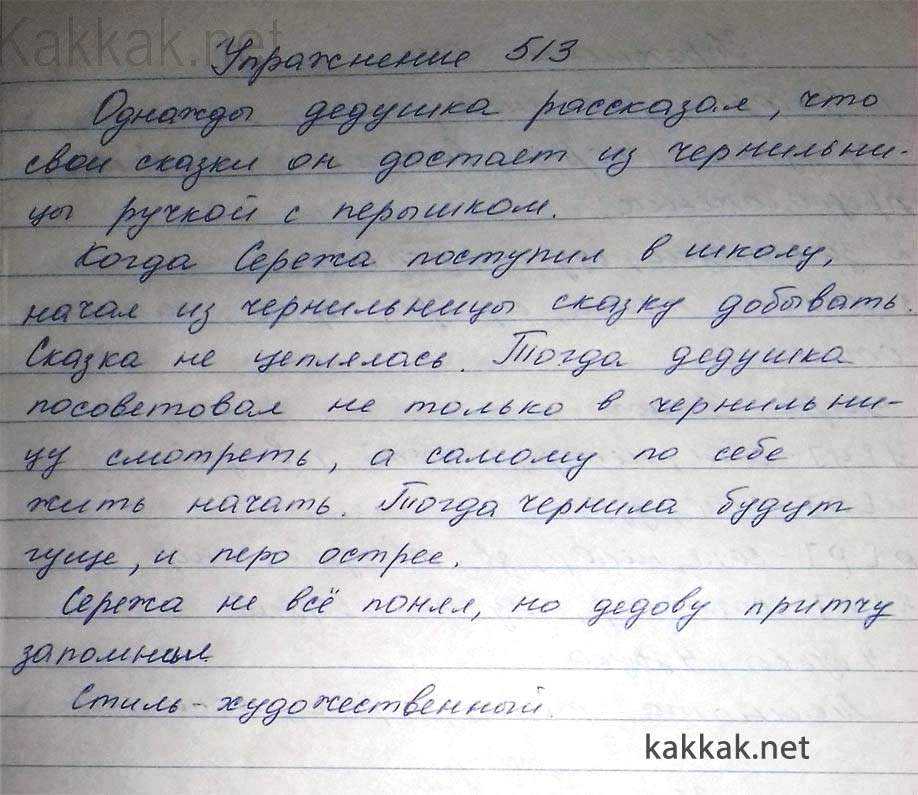 Kakkak.net
Упражнение 513
Однажды дедушка рассказал, что
свои сказки он достает из чернильни-
цы ручкой с перышком.
Когда Сережа поступил в школу,
начал из чернильницы сказку добывать.
Сказка не цеплялась. Тогда дедушка
посоветовал не только в чернильни-
цу смотреть, а самому по себе
жить начать. Тогда чернила будут
гуще, и перо острее.
Сережа не всё понял, но дедову притчу
запомнил
Стиль - художественный.
kakkak.net